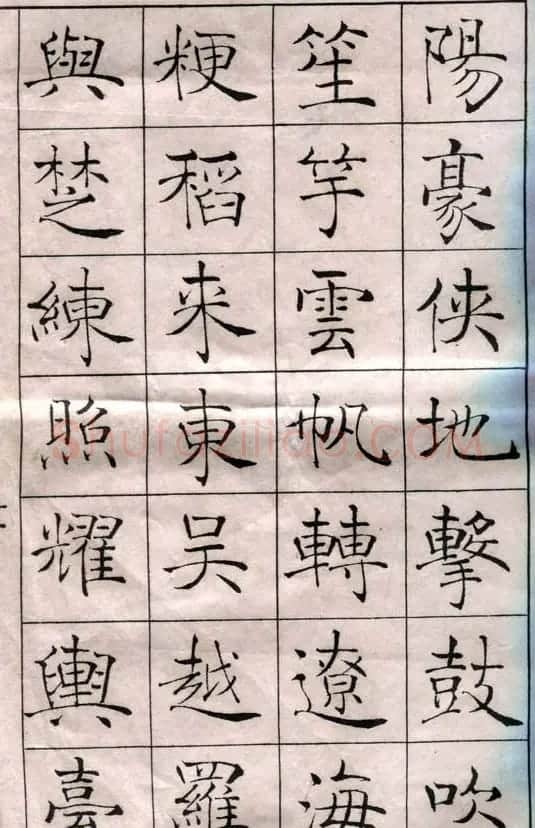 陽豪俠地擊鼓吹
笙竽雲帆轉遼海
粳稻来東吴越羅
與楚練照耀輿臺
Shufaziliao.COM